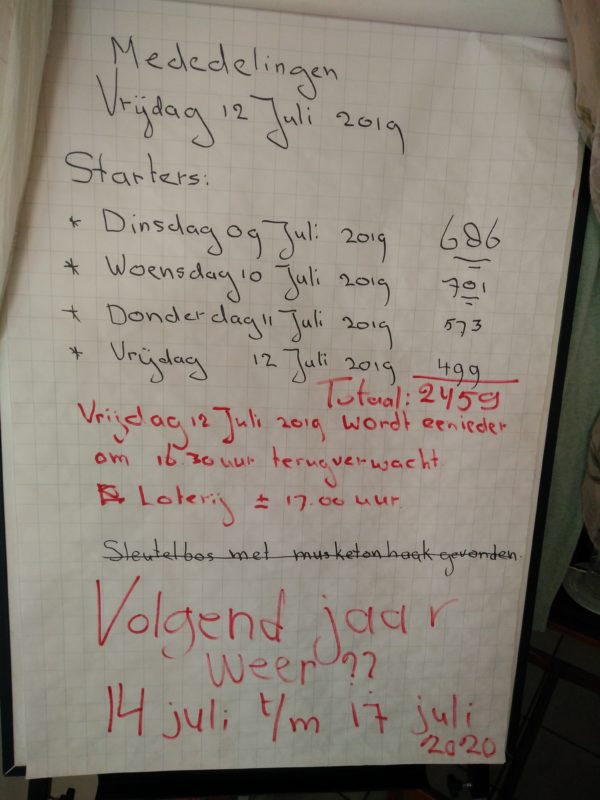 Mededelingen
Vrijdag 12 Juli 2019
Starters:
* Dinsdag 09 Juli 2019 686
* Woensdag 10 Juli 2019 701
* Donderdag 11 Juli 2019 573
* Vrijdag 12 Juli 2019 499
Totaal: 2459
Vrijdag 12 Juli 2019 wordt eenieder
om 16.30 uur terugverwacht
Loterij ± 17.00 uur
Sleutelbos met musketonhaak gevonden.
Volgend jaar
weer ??
14 juli t/m 17 juli
2020